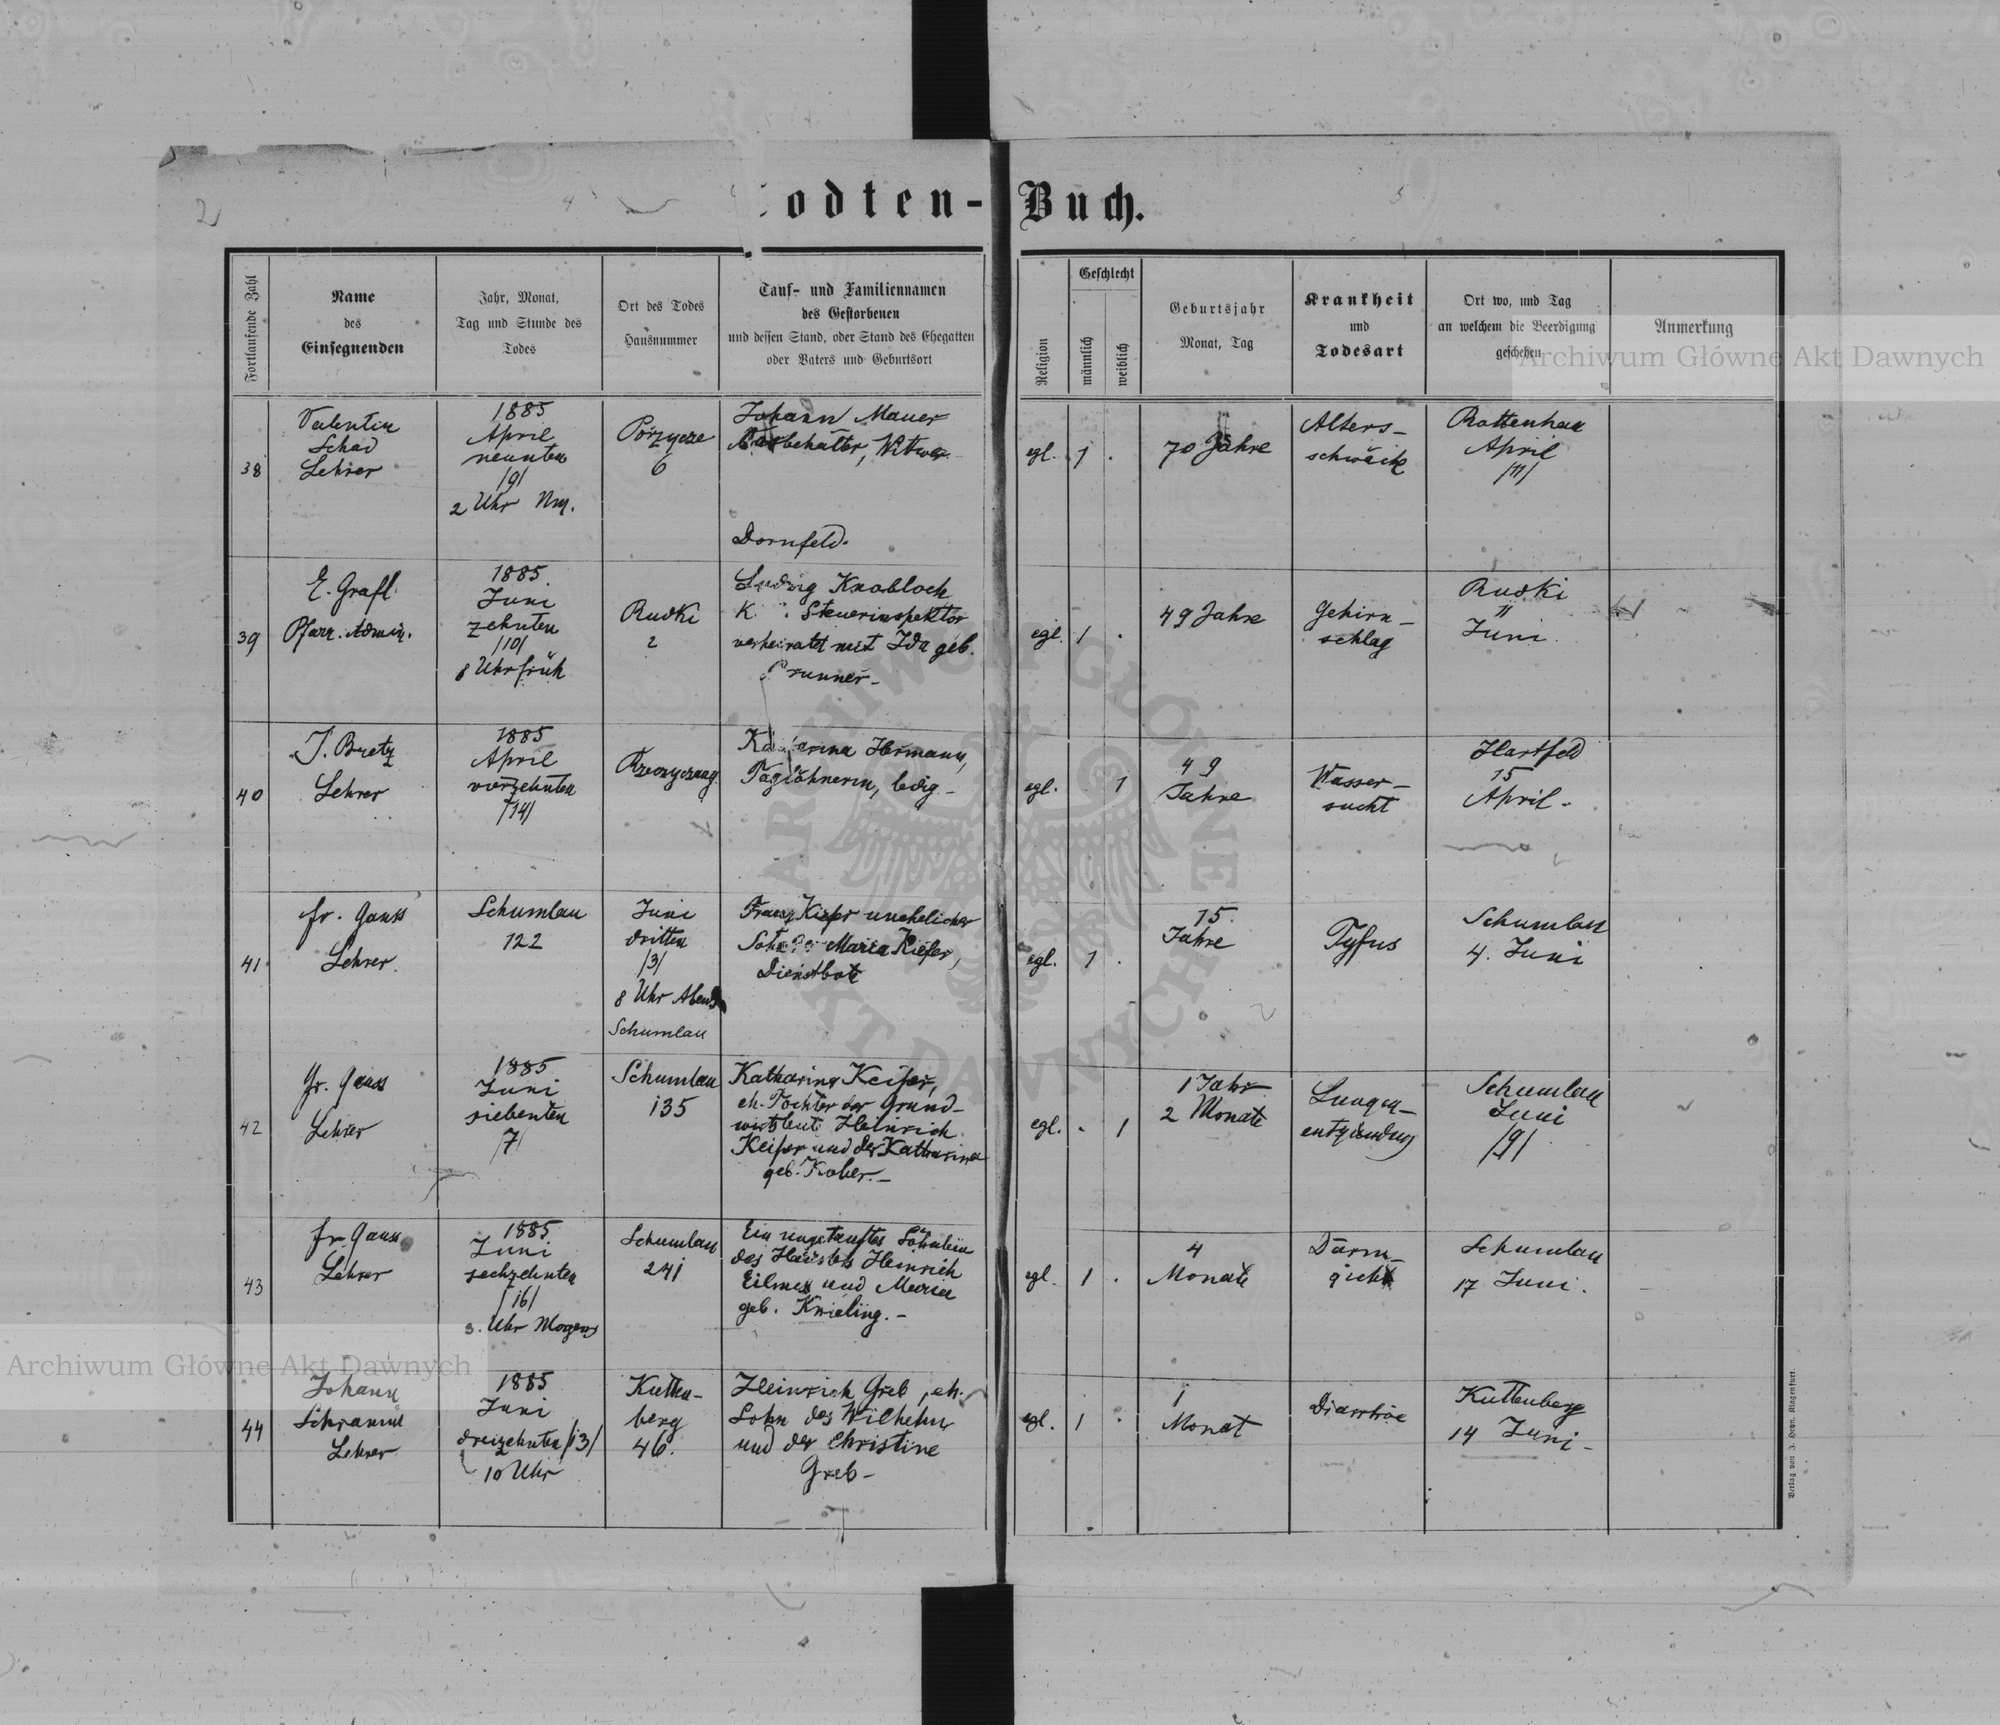 2
odten-Buch.
Fortlaufende Zahl
Name
des
Einsegnenden
Jahr, Monat,
Tag und Stunde des
Todes
Ort des Todes
Hausnummer
Tauf- und Familiennamen
des Gestorbenen
und dessen Stand, oder Stand des Ehegatten
oder Vaters und Geburtsort
Religion
Geschlecht
männlich
weiblich
Geburtsjahr
Monat, Tag
Krankheit
und
Todesart
Ort wo, und Tag
an welchem die Beerdigung
geschehen
Anmerkung
Archiwum Główne Akt Dawnych
38
Valentin
Schad
Lehrer
1885
April
neunten
/9/
2 Uhr Nm.
Porzycze
6
Johann Mauer
Witwer
Dornfeld.
egl.
1
.
70 Jahre
Alters-
schwäche
Rottenhan
April
/11/
39
E. Grafl
Pfarr. Admin.
1885.
Juni
zehnten
/10/
8 Uhr früh
Rudki
2
Ludwig Knobloch
K. Steuerinspektor
verheiratet mit Ida geb.
Prunner-
egl.
1
.
49 Jahre
Gehirn-
schlag
Rudki
11
Juni.
40
J. Bretz
Lehrer
1885
April
vierzehnten
/14/
Katharina Hermann,
Taglöhnerin, ledig-
egl.
1
49
Jahre
Wasser-
sucht
Hartfeld
15
April-
41
fr. Gauss
Lehrer.
Schumlau
122
Juni
dritten
/3/
8 Uhr Abends
Schumlau
Franz Kiefer unehelicher
Sohn der Maria Kiefer,
Dienstbote
egl.
1
.
15.
Jahre
Tyfus
Schumlau
4. Juni
42
Fr. Gauss
Lehrer
1885
Juni
siebenten
/7/
Schumlau
135
Katharina Keifer,
eh. Tochter der Grund-
wirtsleute Heinrich
Keifer und der Katharina
geb. Kober.-
egl.
.
1
1 Jahr
2 Monate
Lungen-
entzündung
Schumlau
Juni
/9/
43
fr. Gauss
Lehrer
1885
Juni
sechzehnten
/16/
3. Uhr Morgens
Schumlau
241
Ein ungetauftes Söhnlein
des Häuslers Heinrich
Eilmes und Maria
geb. Knieling.-
egl.
1
.
4
Monate
Darm-
gicht
Schumlau
17 Juni.
Archiwum Główne Akt Dawnych
44
Johann
Schramm
Lehrer
1885
Juni
dreizehnten /13/
10 Uhr
Kutten-
berg
46.
Heinrich Greb, eh.
Sohn des Wilhelm
und der Christine
Greb-
egl.
1
.
1
Monat
Diarrhöe
Kuttenberg
14 Juni-
Verlag von J. Heyn, Klagenfurt.
ARCHIWUM GŁÓWNE AKT DAWNYCH